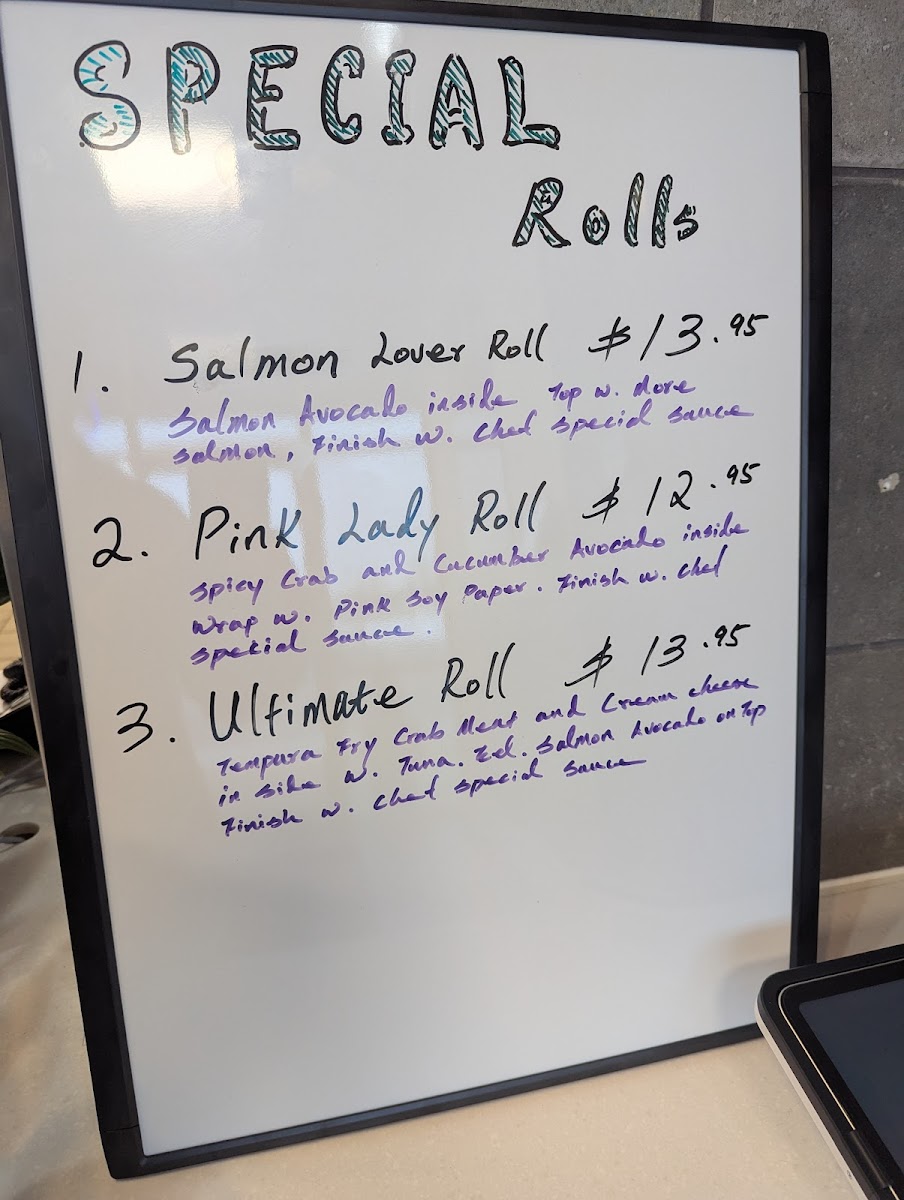 SPECIAL
Rolls
1. Salmon Lover Roll $13.95
Salmon Avocado inside Top w. More
Salmon, Finish w. Chef Special Sauce
2. Pink Lady Roll $12.95
Spicy Crab and Cucumber Avocado inside
Wrap w. Pink Soy Paper. Finish w. Chef
Special Sauce.
3. Ultimate Roll $13.95
Tempura Fry Crab Meat and Cream cheese
in side w. Tuna. Eel. Salmon Avocado on Top
Finish w. Chef Special Sauce